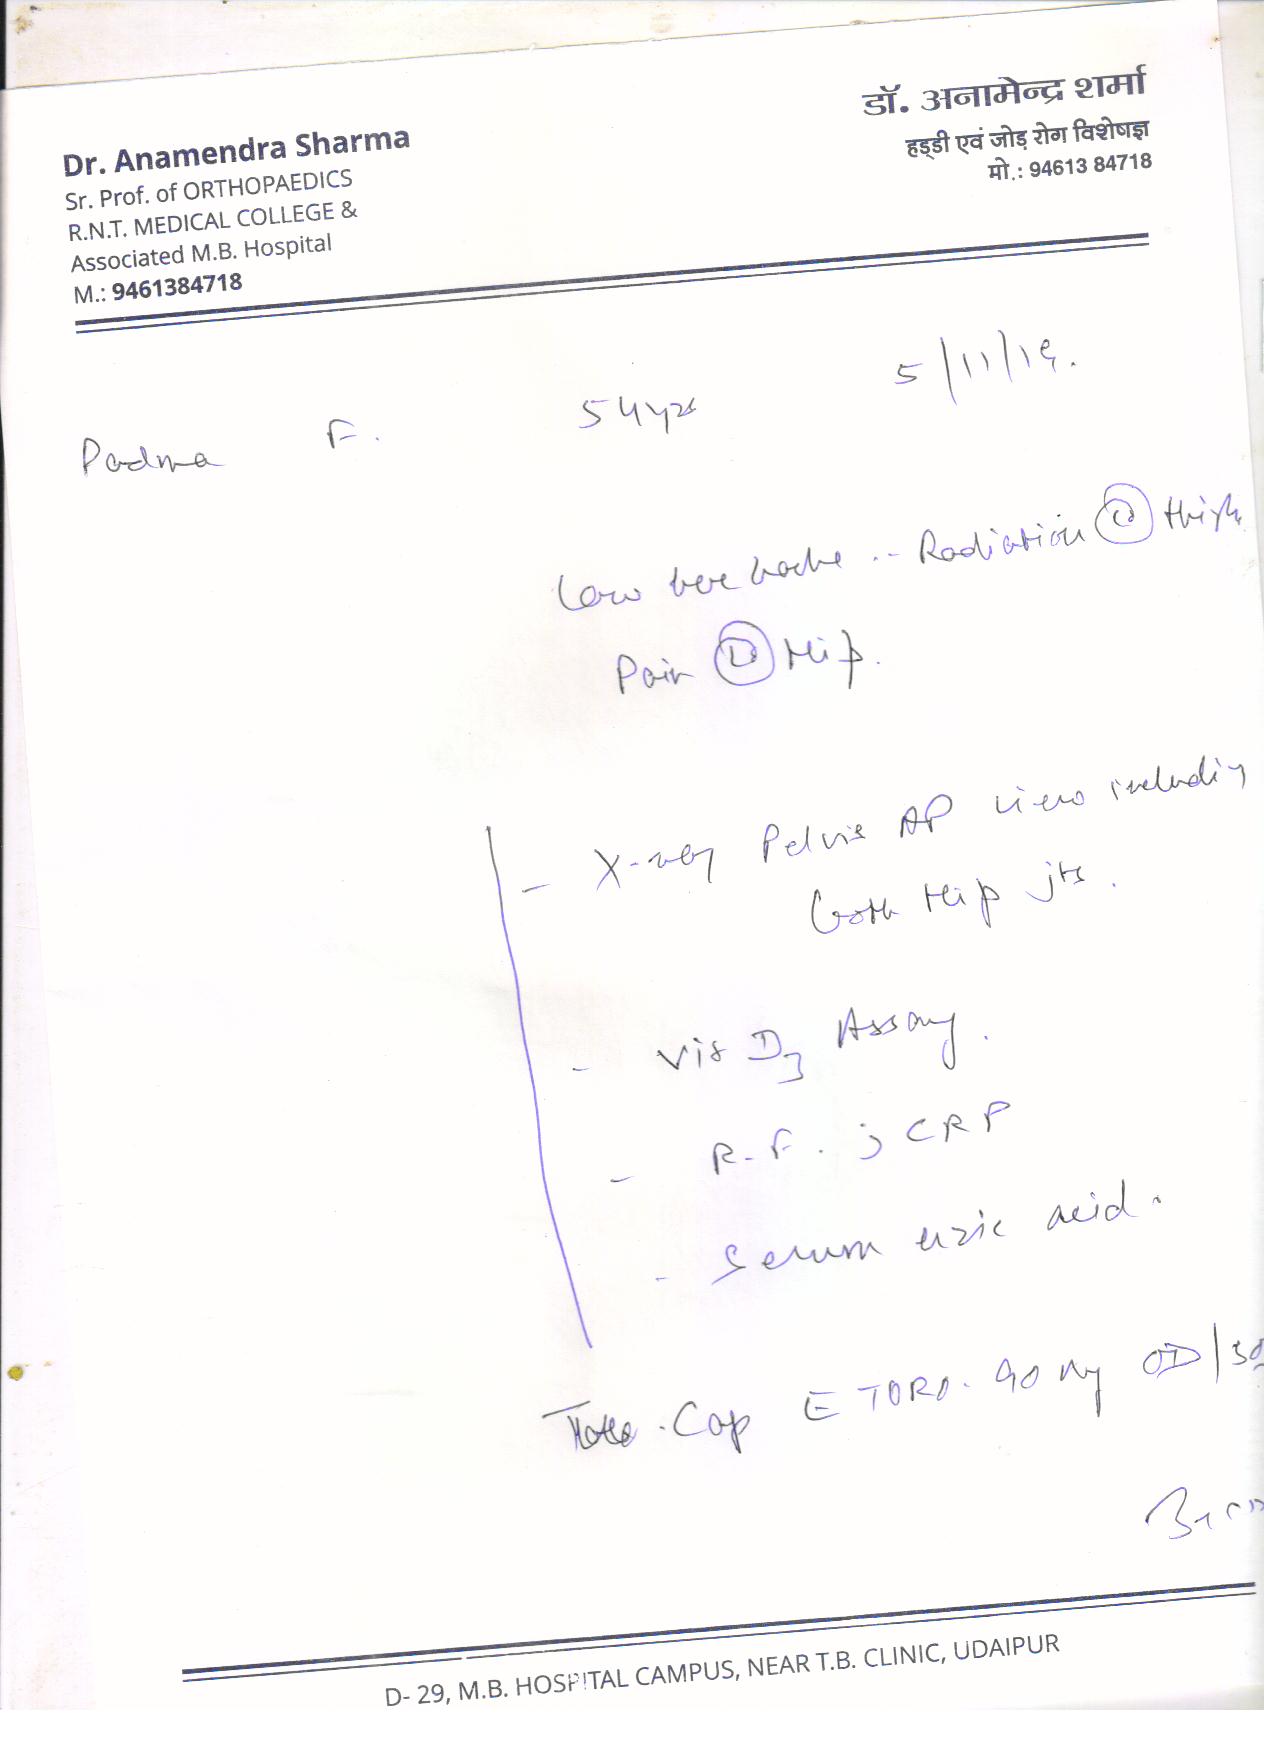 Dr. Anamendra Sharma
Sr. Prof. of ORTHOPAEDICS
R.N.T. MEDICAL COLLEGE &
Associated M.B. Hospital
M.: 9461384718
डॉ. अनामेन्द्र शर्मा
हड्डी एवं जोड़ रोग विशेषज्ञ
मो.: 94613 84718
Padma F. 54yrs 5/11/19.
Low back ache .. Radiation thigh
Pain Hip.
- X-ray Pelvis AP view including
both Hip jts.
- Vit D3 Assay.
- R.F. ; CRP
- Serum uric acid.
Cap ETORO. 90 mg OD/
D- 29, M.B. HOSPITAL CAMPUS, NEAR T.B. CLINIC, UDAIPUR